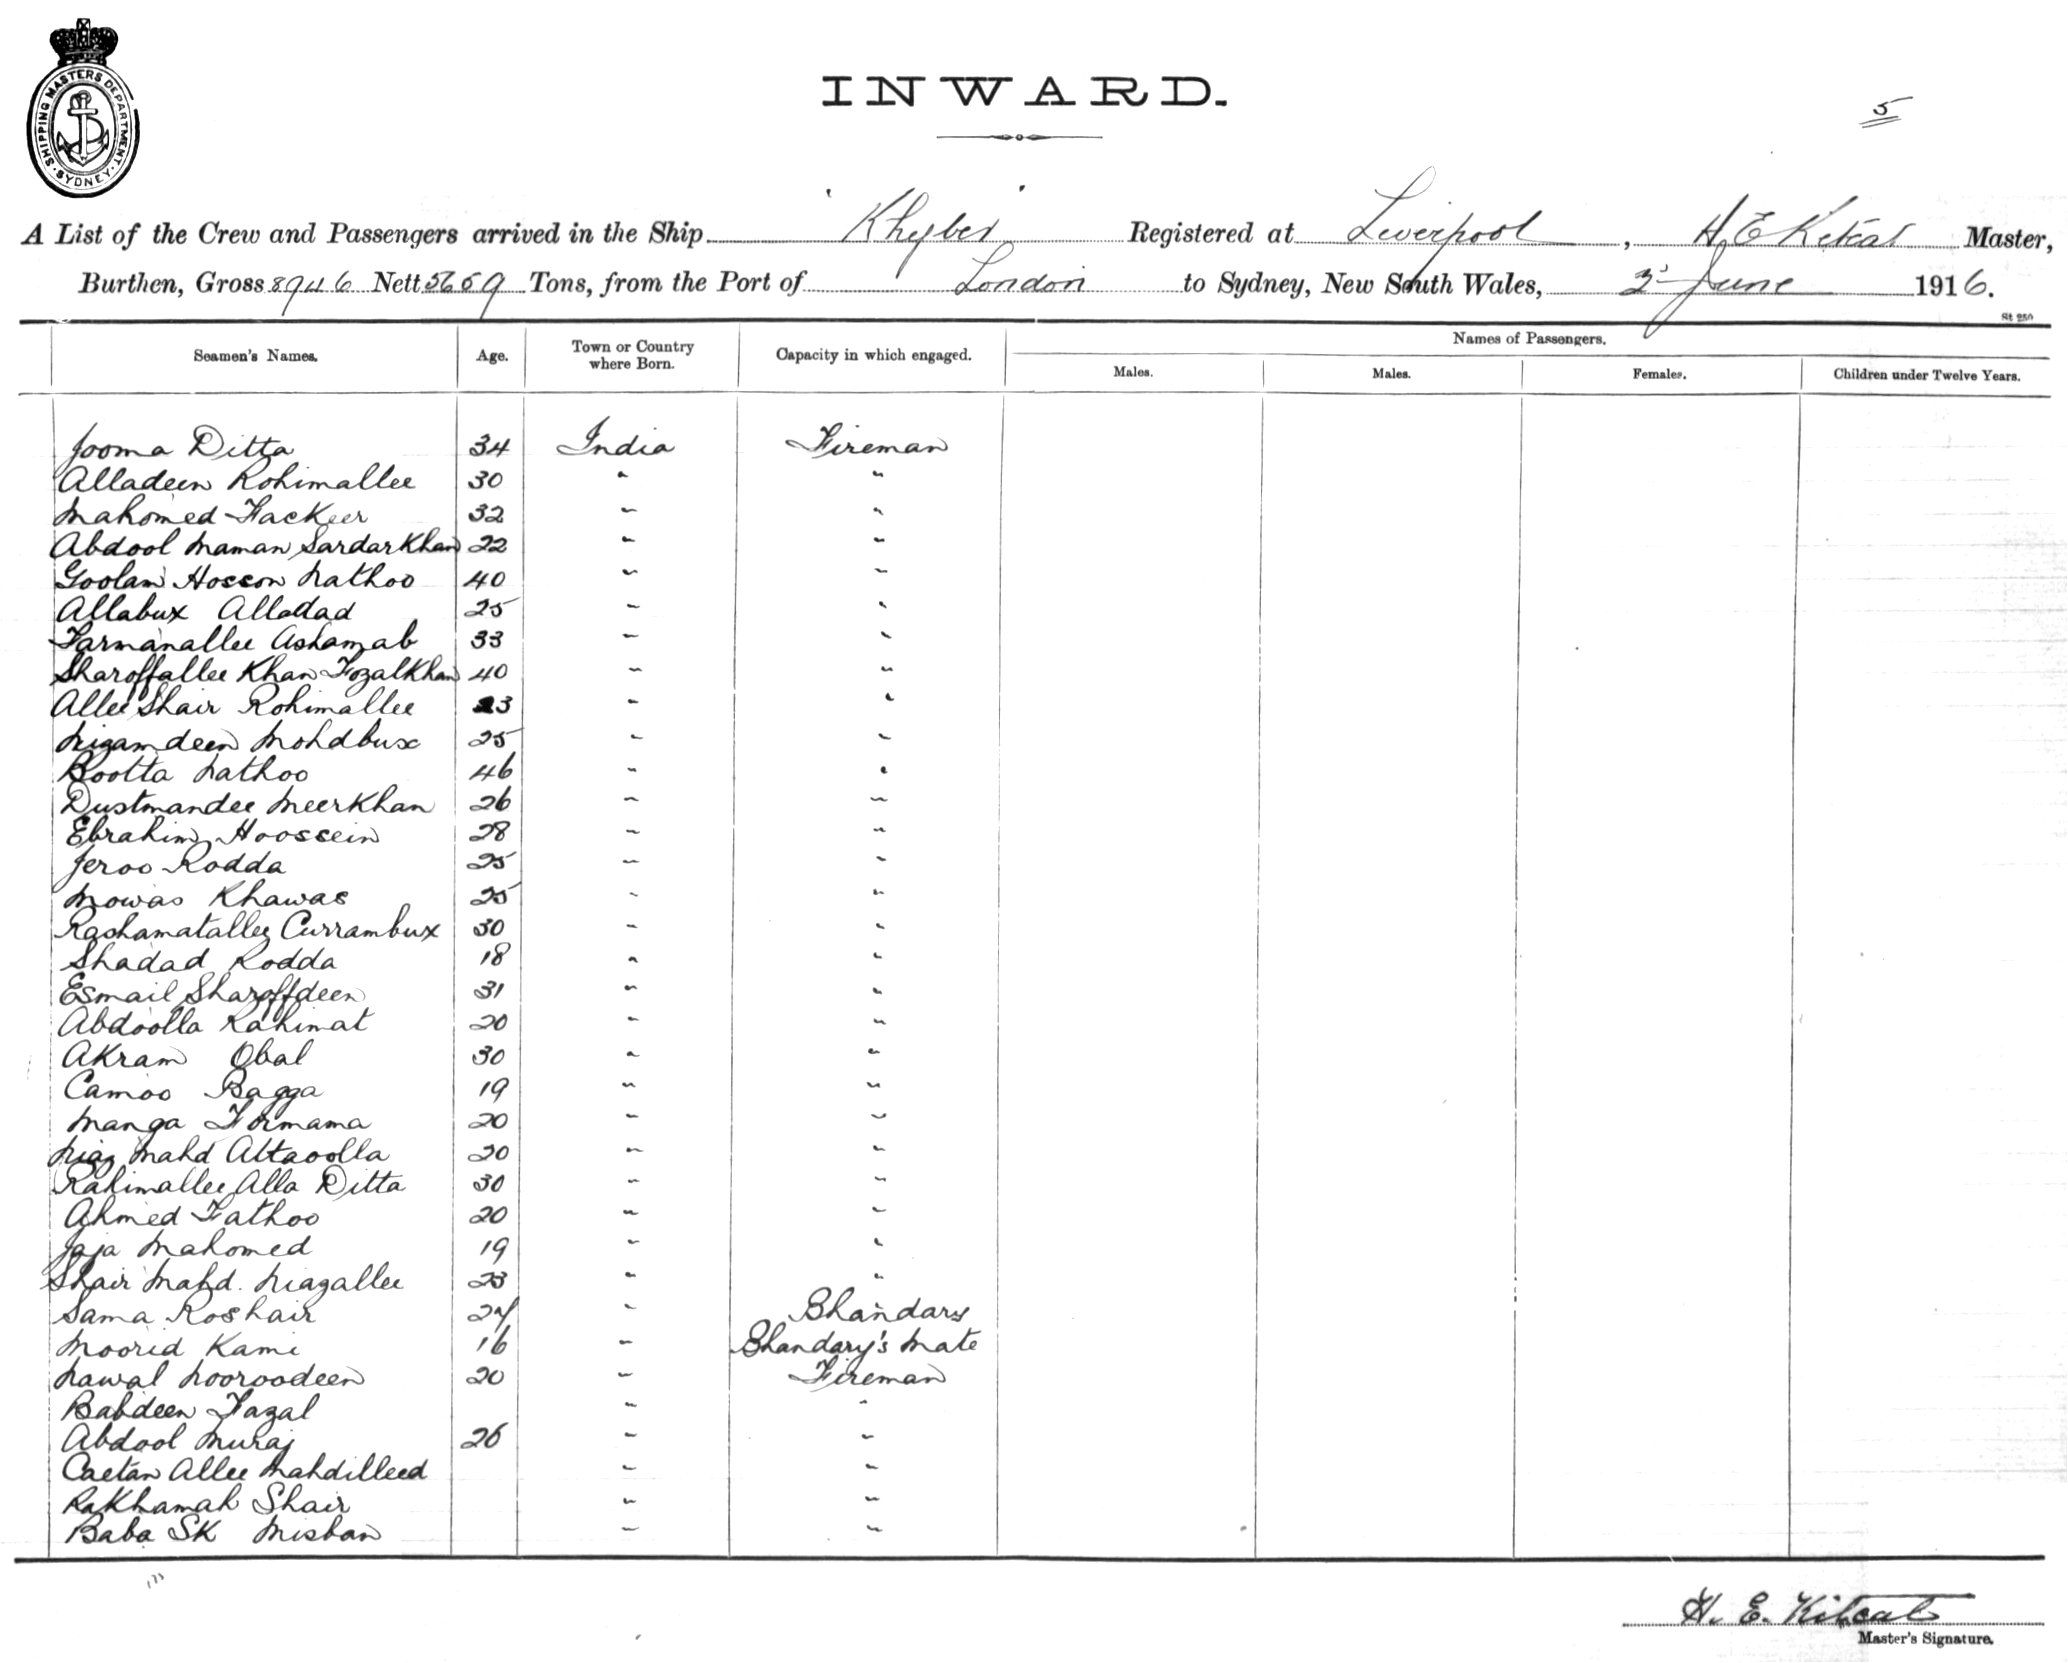 SHIPPING MASTERS DEPARTMENT
SYDNEY
INWARD.
5
A List of the Crew and Passengers arrived in the Ship "Khyber" Registered at Liverpool, H. E. Kitcat Master,
Burthen, Gross 8946 Nett 5659 Tons, from the Port of London to Sydney, New South Wales, 2 June 1916.
St 250
Seamen's Names. Age. Town or Country where Born. Capacity in which engaged. Names of Passengers.
Males. Males. Females. Children under Twelve Years.
Jooma Ditta 34 India Fireman
Alladeen Rohimallee 30 " "
Mahomed Fackeer 32 " "
Abdool Maman Sardarkhan 22 " "
Goolam Hosson Nathoo 40 " "
Allabux Alladad 25 " "
Farmanallee Ashamab 33 " "
Sharoffallee Khan Fozalkhan 40 " "
Allee Shair Rohimallee 23 " "
Nizamdeen Mohdbux 25 " "
Bootta Nathoo 46 " "
Dustmandee Meerkhan 26 " "
Ebrahim Hoossein 28 " "
Jeroo Rodda 25 " "
Mowas Khawas 25 " "
Rashamatallee Currambux 30 " "
Shadad Rodda 18 " "
Esmail Sharoffdeen 31 " "
Abdoolla Rahimat 20 " "
Akram Obal 30 " "
Camoo Bagga 19 " "
Manga Formama 20 " "
Niaz Mahd Altaoolla 20 " "
Rahimallee Alla Ditta 30 " "
Ahmed Fathoo 20 " "
Jaja Mahomed 19 " "
Shair Mahd. Niazallee 23 " "
Sama Roshair 24 " Bhandary
Moorid Kami 16 " Bhandary's Mate
Nawal Nooroodeen 20 " Fireman
Babdeen Fazal " "
Abdool Muraj 26 " "
Caetan Allee Mahdilleed " "
Rakhamah Shair " "
Baba SK Misban " "
H. E. Kitcat
Master's Signature.